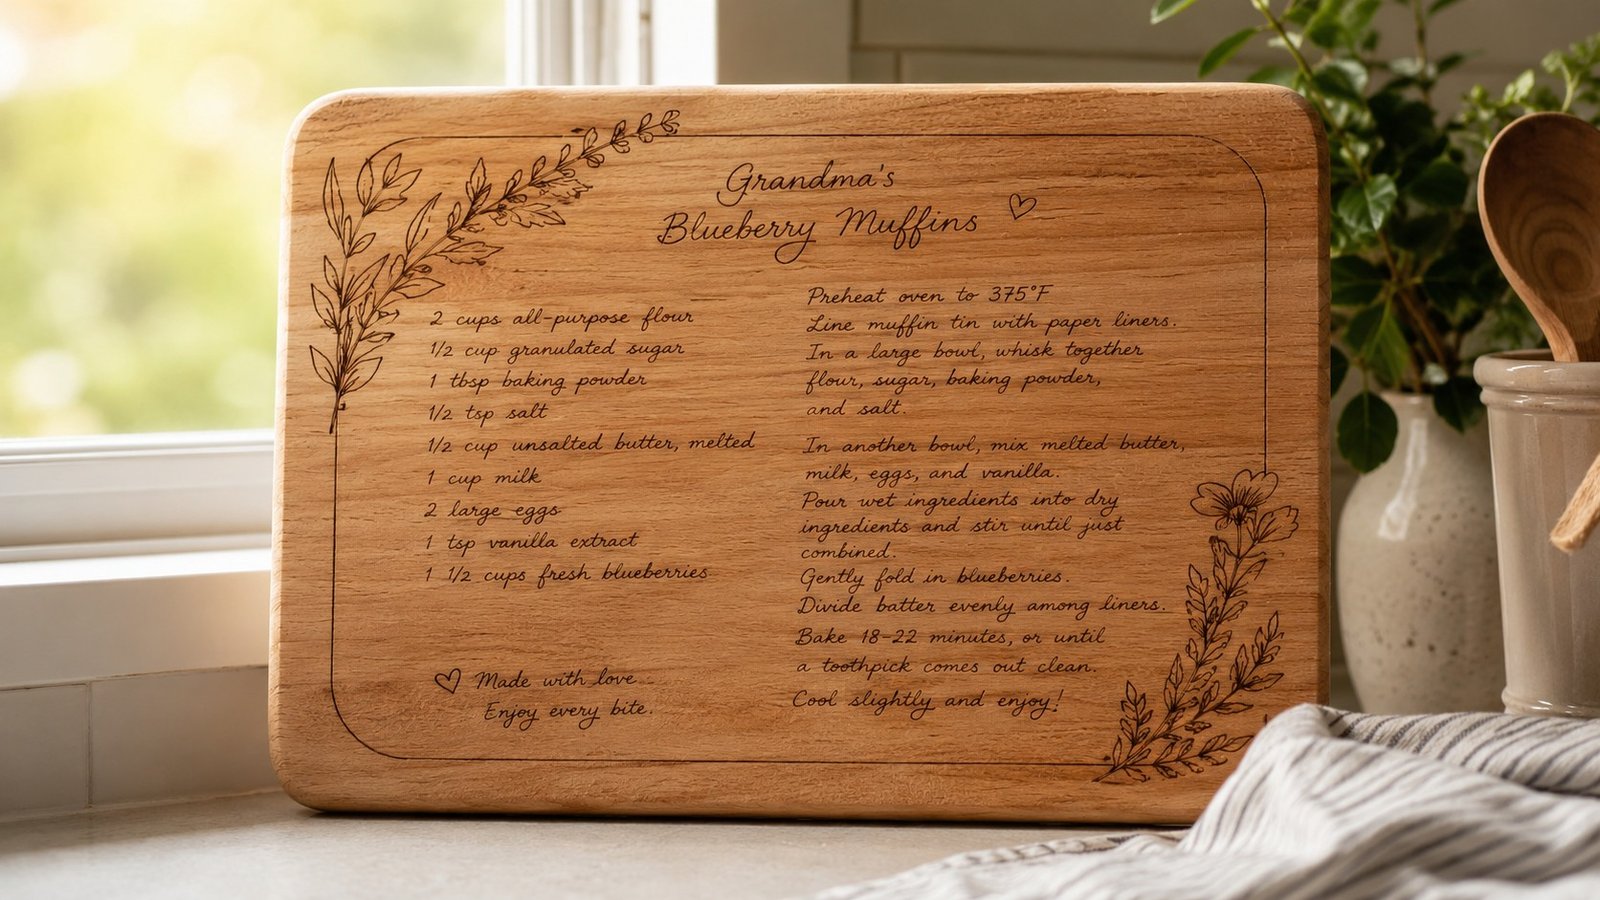 Grandma's
Blueberry Muffins
2 cups all-purpose flour
1/2 cup granulated sugar
1 tbsp baking powder
1/2 tsp salt
1/2 cup unsalted butter, melted
1 cup milk
2 large eggs
1 tsp vanilla extract
1 1/2 cups fresh blueberries
Made with love
Enjoy every bite.
Preheat oven to 375°F
Line muffin tin with paper liners.
In a large bowl, whisk together
flour, sugar, baking powder,
and salt.
In another bowl, mix melted butter,
milk, eggs, and vanilla.
Pour wet ingredients into dry
ingredients and stir until just
combined.
Gently fold in blueberries.
Divide batter evenly among liners.
Bake 18-22 minutes, or until
a toothpick comes out clean.
Cool slightly and enjoy!